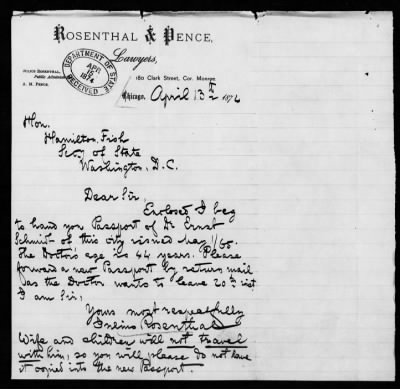 ROSENTHAL & PENCE,
Lawyers,
JULIUS ROSENTHAL,
Public Administrator
A. M. PENCE.
180 Clark Street, Cor. Monroe
DEPARTMENT OF STATE
APR
1874
RECEIVED
Chicago, April 13th 1874
Hon.
Hamilton Fish
Secy of State
Washington, D.C.
Dear Sir,
Enclosed I beg
to hand you Passport of Dr Ernst
Schmidt of this city issued May 1/65.
The Doctor's age is 44 years. Please
forward a new Passport by return mail
as the Doctor wants to leave 20th inst
I am Sir,
Yours most respectfully
Julius Rosenthal
Wife and children will not travel
with him, so you will please do not have
it copied into the new Passport.